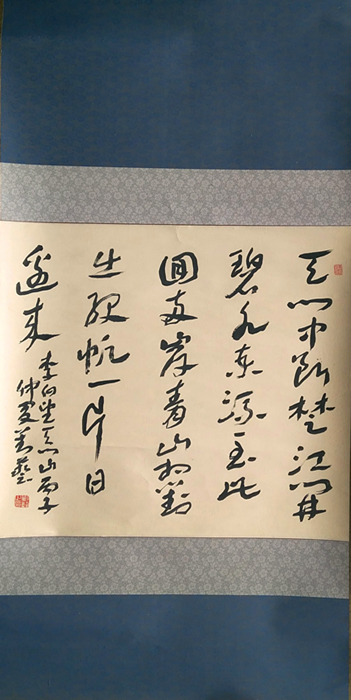 天门中断楚江開
碧水東流至此
囬两岸青山相對
出孤帆一片日
邊来
李白望天门山丙子
仲夏